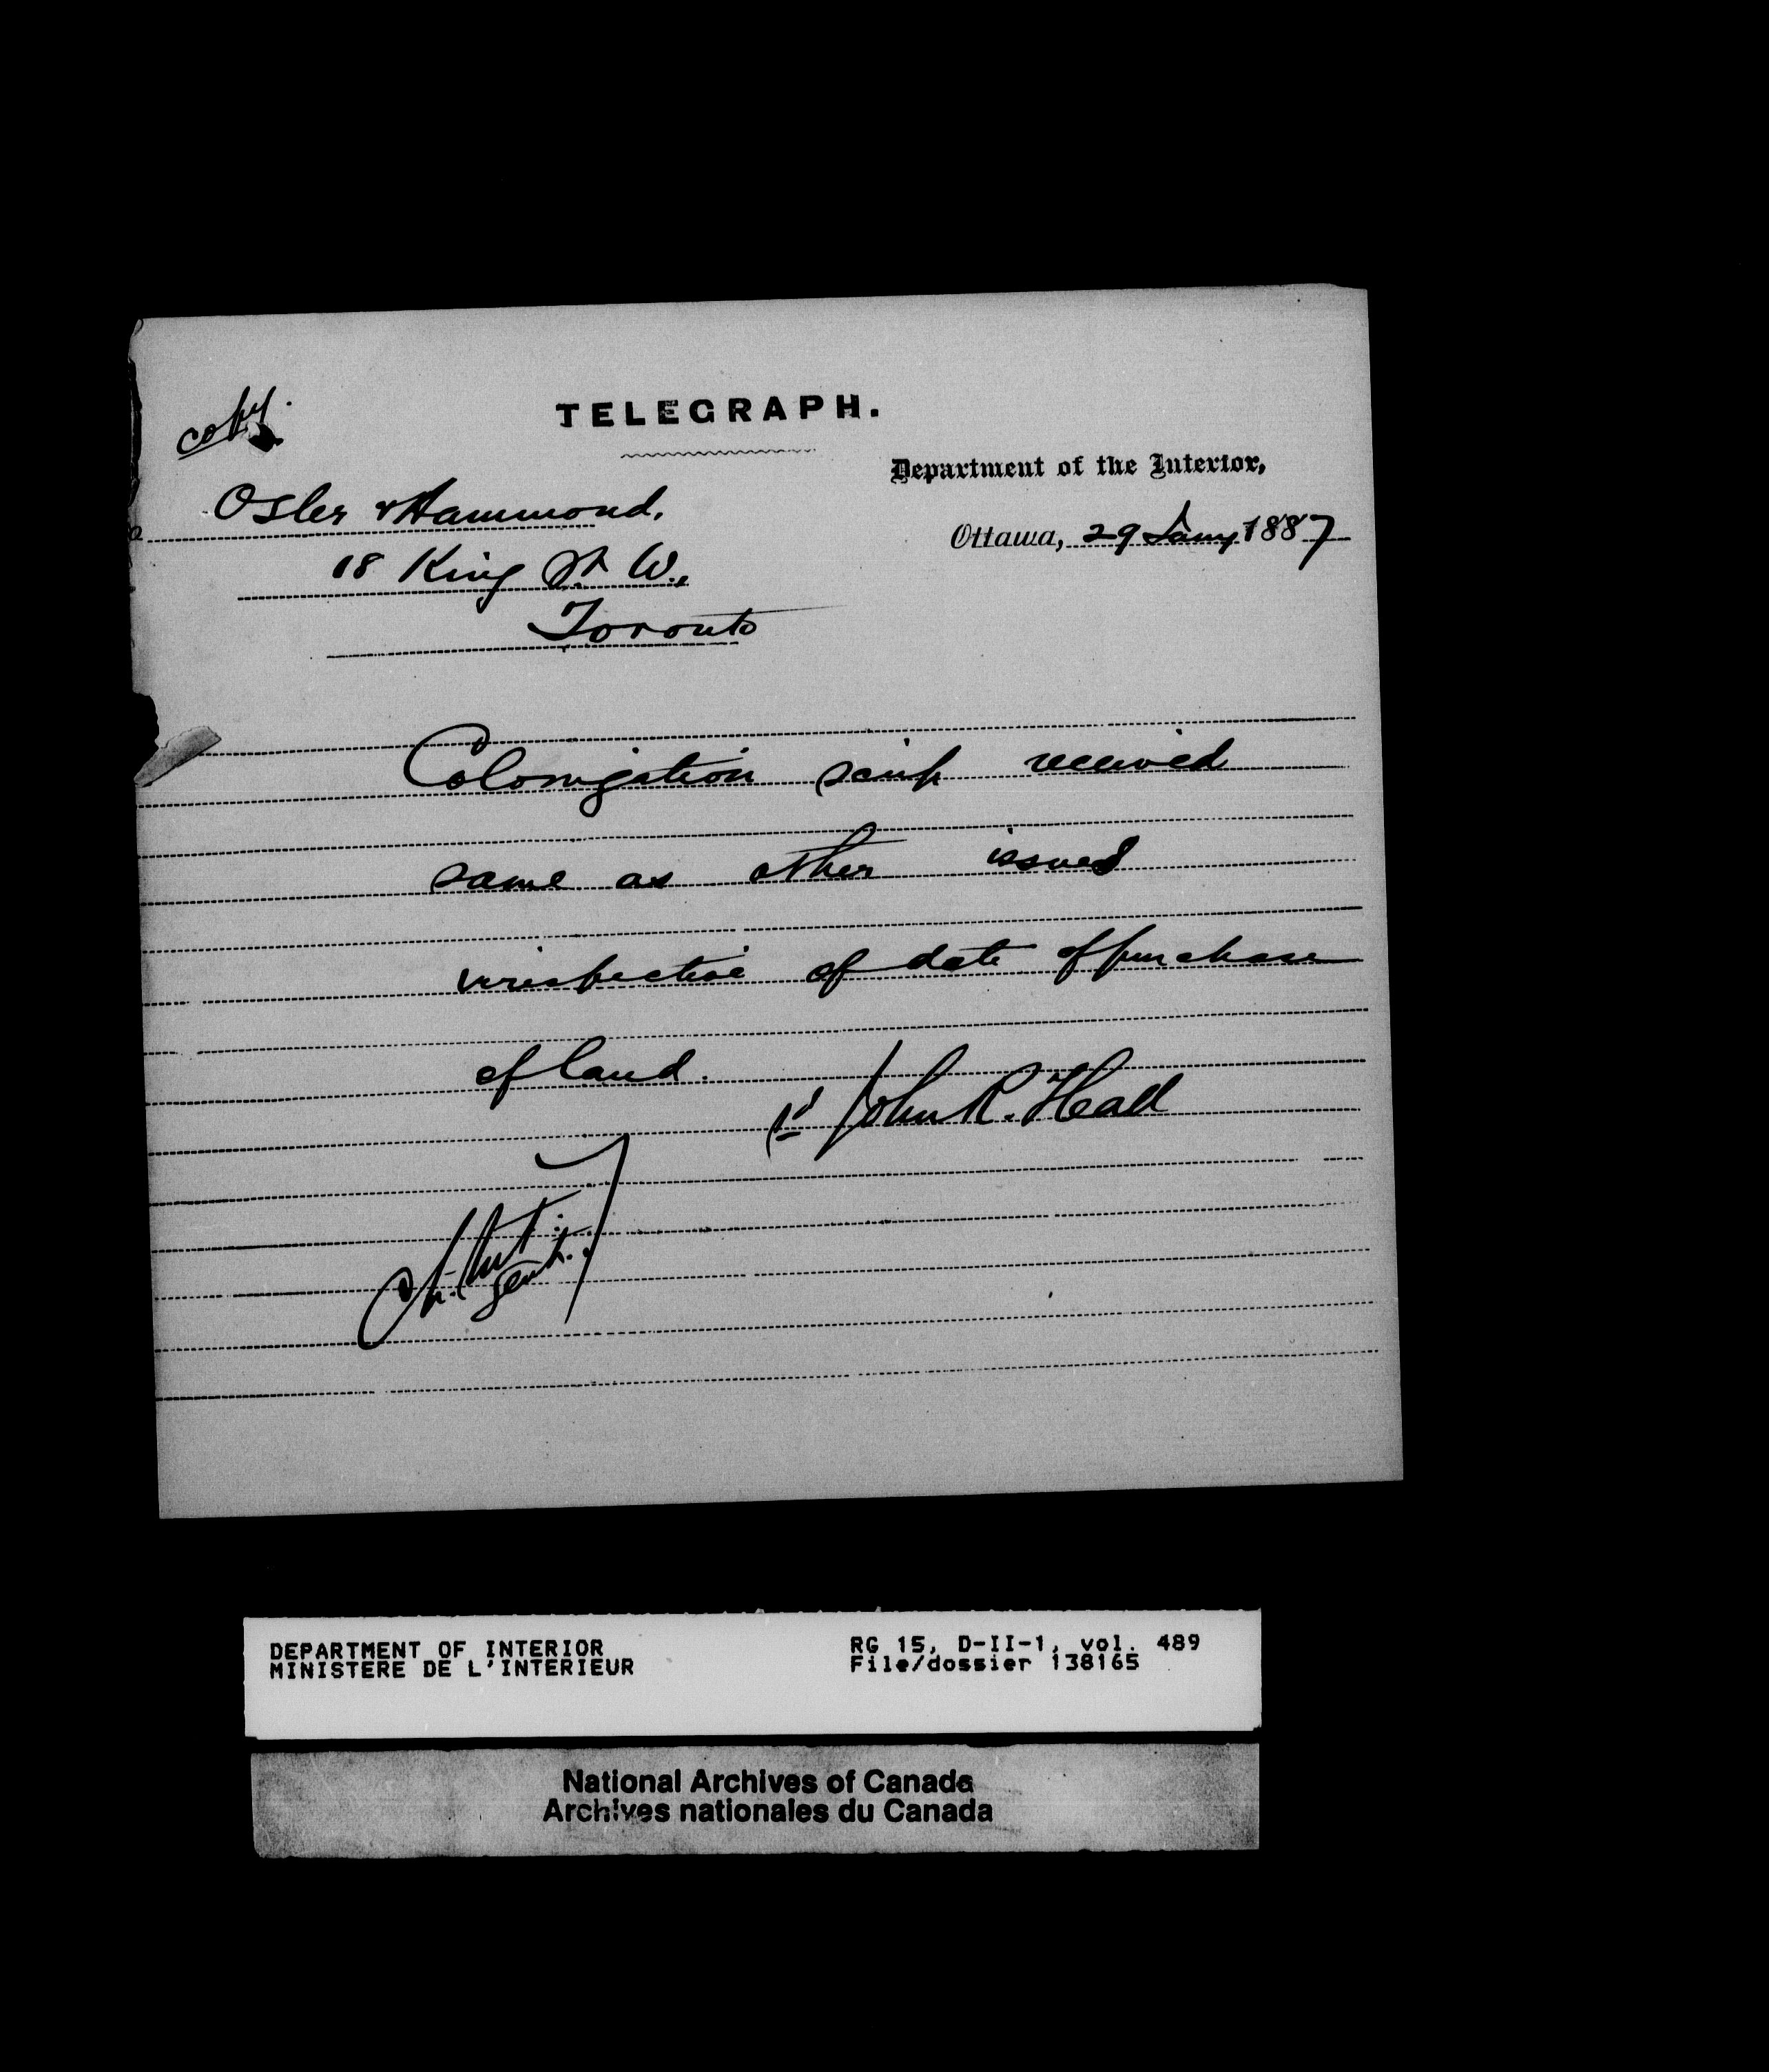 copy.
TELEGRAPH.
Department of the Interior,
Osler & Hammond.
Ottawa, 29 Jany 1887
18 King St W.,
Toronto
Colonization scrip received
same as other issued
irrispective of date of purchase
of land.
sd John R. Hall
DEPARTMENT OF INTERIOR
MINISTERE DE L'INTERIEUR
RG 15, D-II-1, vol. 489
File/dossier 138165
National Archives of Canada
Archives nationales du Canada